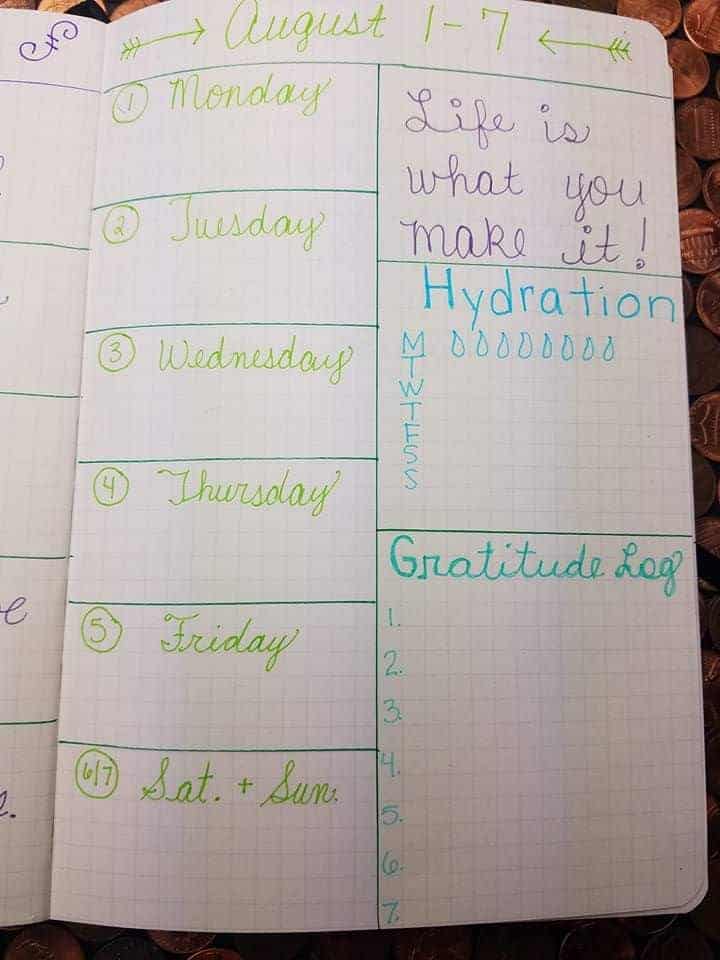 August 1-7
1 Monday
2 Tuesday
3 Wednesday
4 Thursday
5 Friday
6/7 Sat. + Sun.
Life is
what you
make it!
Hydration
M
T
W
T
F
S
S
Gratitude Log
1.
2.
3.
4.
5.
6.
7.